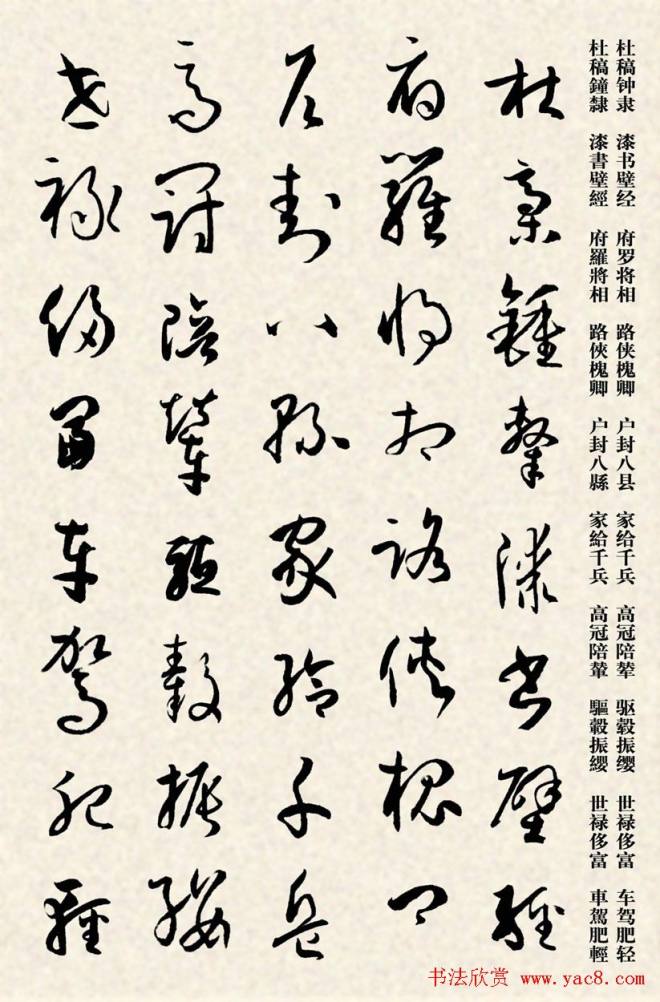 杜稿钟隶 漆书壁经 府罗将相 路侠槐卿 户封八县 家给千兵 高冠陪辇 驱毂振缨 世禄侈富 车驾肥轻
杜稿鐘隸 漆書壁經 府羅將相 路俠槐卿 户封八縣 家給千兵 高冠陪輦 驅轂振纓 世禄侈富 車駕肥輕
杜稾鍾隸漆書壁經
府羅將相路俠槐卿
户封八縣家給千兵
高冠陪輦驅轂振纓
世禄侈富車駕肥輕
书法欣赏 www.yac8.com